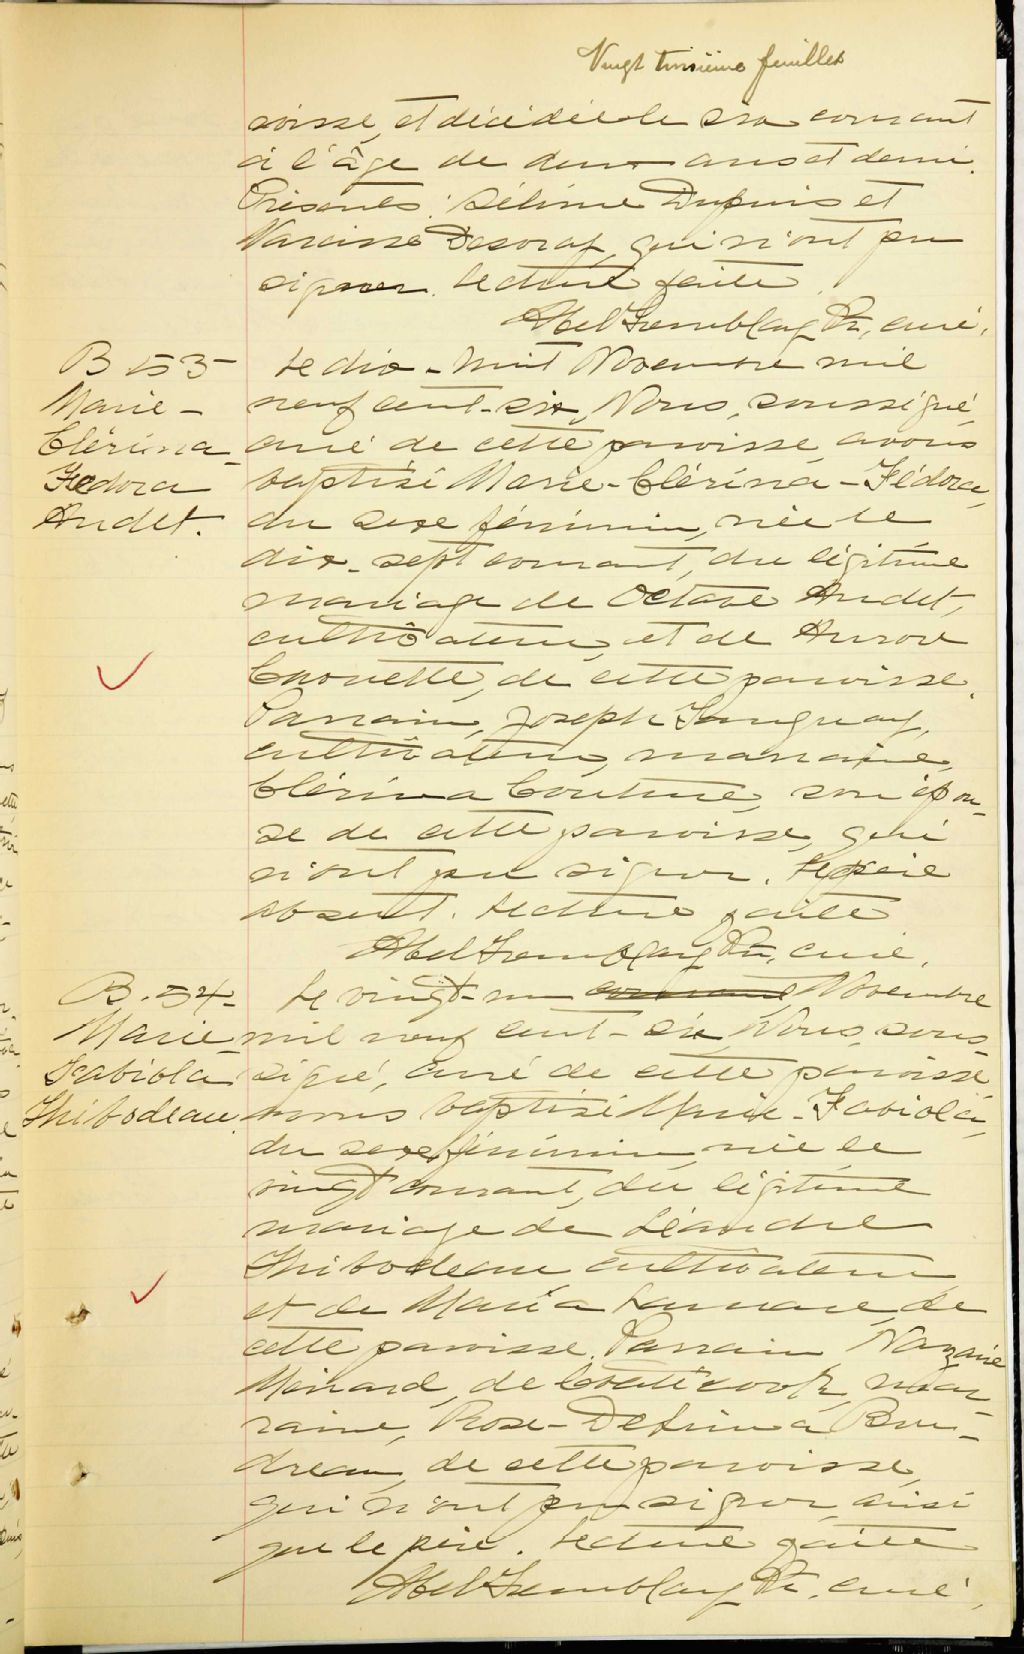 Vingt troisième feuillet
roisse, et décédée le six courant
à l'âge de deux ans et demi.
Présents: Sélime Dupuis et
Narcisse qui n'ont pu
signer. Lecture faite
Abel Tremblay Ptr, curé.
B 53
Marie-
Clérina-
Fedora
Audet.
Le dix-huit Novembre mil
neuf cent-six, Nous, soussigné,
curé de cette paroisse, avons
baptisé Marie-Clérina-Fédora,
du sexe féminin, née le
dix-sept courant, du légitime
mariage de Octave Audet,
cultivateur, et de Aurore
Chouette, de cette paroisse.
Parrain, Joseph Tanguay,
cultivateur, marraine,
Clérina Couture, son épou-
se de cette paroisse, qui
n'ont pu signer. Le père
absent. Lecture faite
Abel Tremblay Ptr, curé.
B. 54-
Marie-
Fabiola
Thibodeau.
Le vingt-un courant Novembre
mil neuf cent-six, Nous, sous-
signé, curé de cette paroisse
avons baptisé Marie-Fabiola,
du sexe féminin, née le
vingt courant, du légitime
mariage de Léandre
Thibodeau, cultivateur
et de Maria de
cette paroisse. Parrain Nazaire
Ménard, de Coaticook, mar-
raine, Rose-Delima Bou-
dreau, de cette paroisse,
qui n'ont pu signer, ainsi
que le père. Lecture faite
Abel Tremblay Ptr, curé,